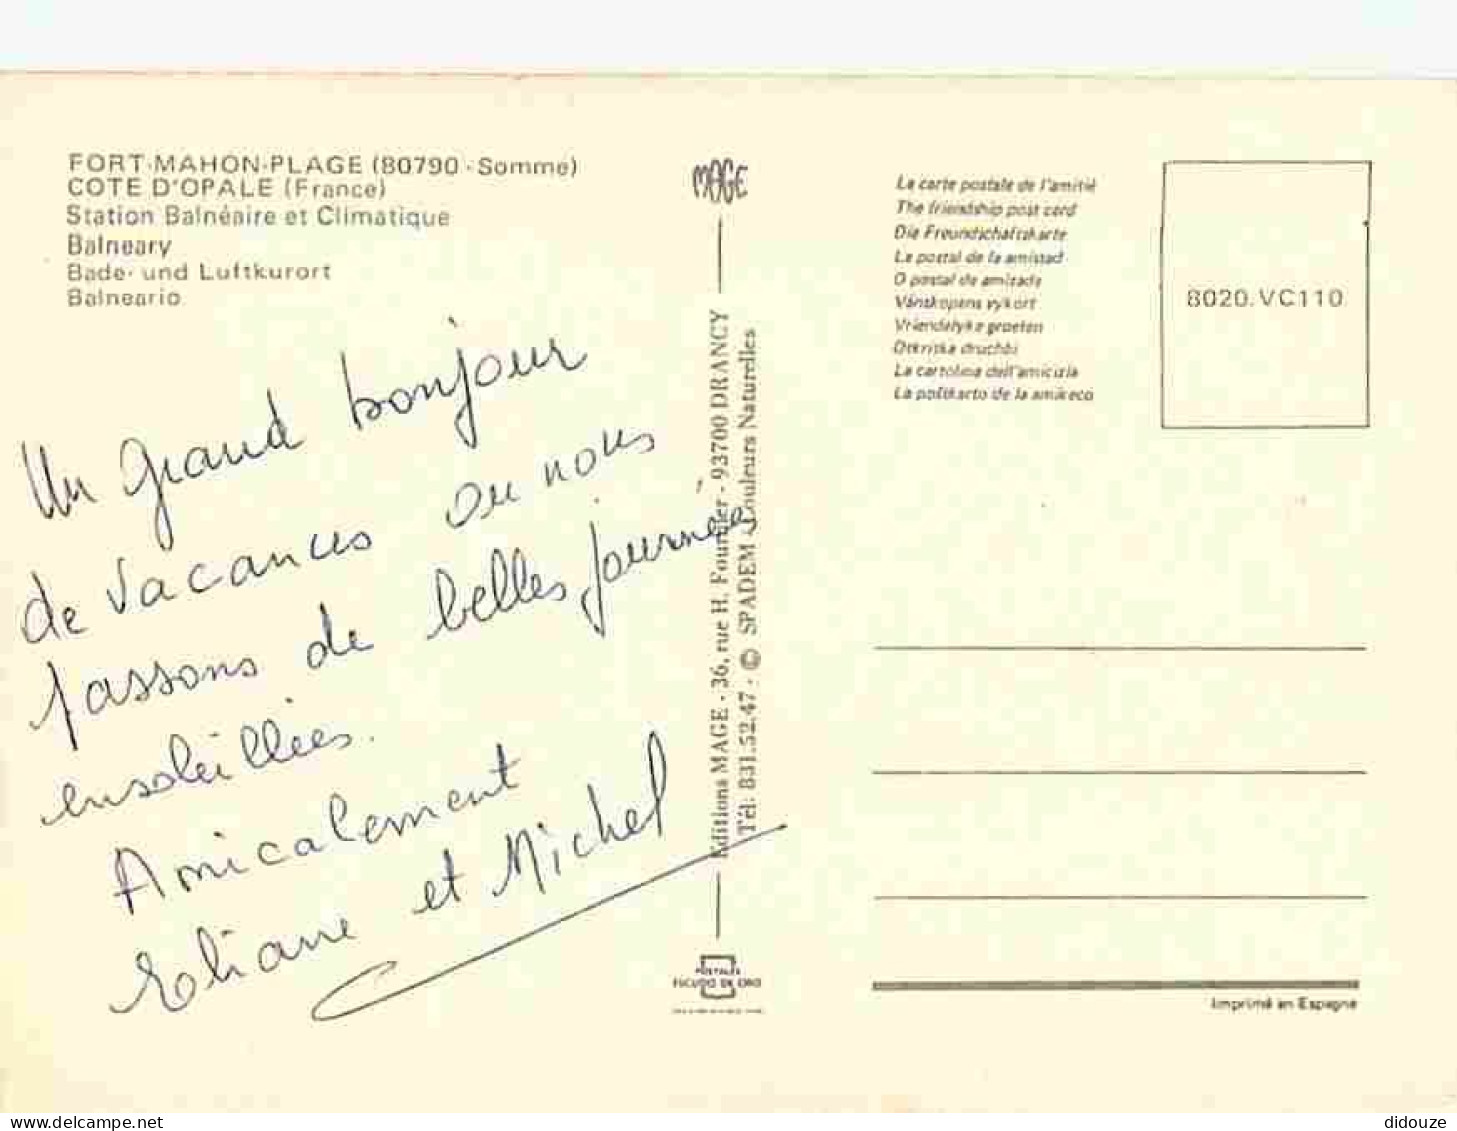 FORT-MAHON-PLAGE (80790 - Somme)
COTE D'OPALE (France)
Station Balnéaire et Climatique
Balneary
Bade- und Luftkurort
Balneario
Un grand bonjour
de vacances ou nous
passons de belles journée
ensoleillées.
Amicalement
Eliane et Michel
MAGE
Editions MAGE - 36, rue H. Fournier - 93700 DRANCY
Tél: 831.52.47 - © SPADEM - Couleurs Naturelles
POSTALES
ESCUDO DE ORO
La carte postale de l'amitié
The friendship post card
Die Freundschaftskarte
La postal de la amistad
O postal de amizade
Vänskapens vykort
Vriendelyke groeten
Otkritka druchbi
La cartolina dell'amicizia
La poŝtkarto de la amikeco
8020.VC110
Imprimé en Espagne
didouze